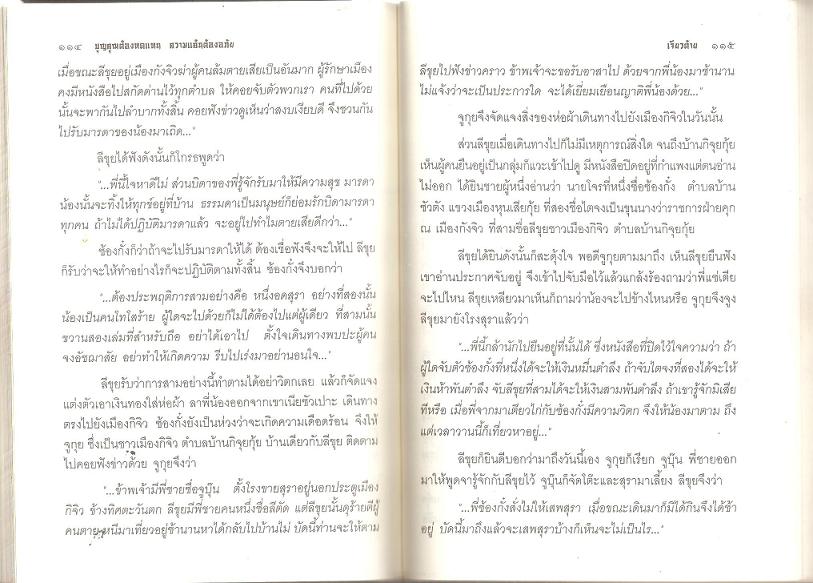 ๑๑๔ บุญคุณต้องทดแทน ความแค้นต้องอภัย
เมื่อขณะลีขุยอยู่เมืองกังจิวฆ่าผู้คนล้มตายเสียเป็นอันมาก ผู้รักษาเมือง
คงมีหนังสือไปสกัดด่านไว้ทุกตำบล ให้คอยจับตัวพวกเรา คนที่ไปด้วย
นั้นจะพากันไปลำบากทั้งสิ้น คอยฟังข่าวดูเห็นว่าสงบเงียบดี จึงชวนกัน
ไปรับมารดาของน้องมาเถิด..."
ลีขุยได้ฟังดังนั้นก็โกรธพูดว่า
"...พี่นี้ใจหาดีไม่ ส่วนบิดาของพี่รู้จักรับมาให้มีความสุข มารดา
น้องนั้นจะทิ้งให้ทุกข์อยู่ที่บ้าน ธรรมดาเป็นมนุษย์ก็ย่อมรักบิดามารดา
ทุกคน ถ้าไม่ได้ปฏิบัติมารดาแล้ว จะอยู่ไปทำไมตายเสียดีกว่า..."
ซ้องกั๋งก็ว่าถ้าจะไปรับมารดาให้ได้ ต้องเชื่อฟังจึงจะให้ไป ลีขุย
ก็รับว่าจะให้ทำอย่างไรก็จะปฏิบัติตามทั้งสิ้น ซ้องกั๋งจึงบอกว่า
"...ต้องประพฤติการสามอย่างคือ หนึ่งอดสุรา อย่างที่สองนั้น
น้องเป็นคนโทโสร้าย ผู้ใดจะไปด้วยก็ไม่ได้ต้องไปแต่ผู้เดียว ที่สามนั้น
ขวานสองเล่มที่สำหรับถือ อย่าได้เอาไป ตั้งใจเดินทางพบปะผู้คน
จงอัชฌาสัย อย่าทำให้เกิดความ รีบไปเร่งมาอย่านอนใจ..."
ลีขุยรับว่าการสามอย่างนี้ทำตามได้อย่าวิตกเลย แล้วก็จัดแจง
แต่งตัวเอาเงินทองใส่ห่อผ้า ลาพี่น้องออกจากเขาเนียซัวเปาะ เดินทาง
ตรงไปยังเมืองกิจิว ซ้องกั๋งยังเป็นห่วงว่าจะเกิดความเดือดร้อน จึงให้
จูกุย ซึ่งเป็นชาวเมืองกิจิว ตำบลบ้านกิจุยกุ้ย บ้านเดียวกับลีขุย ติดตาม
ไปคอยฟังข่าวด้วย จูกุยจึงว่า
"...ข้าพเจ้ามีพี่ชายชื่อจูบุ๊น ตั้งโรงขายสุราอยู่นอกประตูเมือง
กิจิว ข้างทิศตะวันตก ลีขุยมีพี่ชายคนหนึ่งชื่อลีตัด แต่ลีขุยนั้นดุร้ายตีผู้
คนตาย หนีมาเที่ยวอยู่ช้านานหาได้กลับไปบ้านไม่ บัดนี้ท่านจะให้ตาม
เจียวต้าย ๑๑๕
ลีขุยไปฟังข่าวคราว ข้าพเจ้าจะขอรับอาสาไป ด้วยจากพี่น้องมาช้านาน
ไม่แจ้งว่าจะเป็นประการใด จะได้เยี่ยมเยือนญาติพี่น้องด้วย..."
จูกุยจึงจัดแจงสิ่งของห่อผ้าเดินทางไปยังเมืองกิจิวในวันนั้น
ส่วนลีขุยเมื่อเดินทางไปก็ไม่มีเหตุการณ์สิ่งใด จนถึงบ้านกิจุยกุ้ย
เห็นผู้คนยืนอยู่เป็นกลุ่มก็แวะเข้าไปดู มีหนังสือปิดอยู่ที่กำแพงแต่ตนอ่าน
ไม่ออก ได้ยินชายผู้หนึ่งอ่านว่า นายโจรที่หนึ่งชื่อซ้องกั๋ง ตำบลบ้าน
ซัวตัง แขวงเมืองหุนเสียกุ้ย ที่สองชื่อไตจงเป็นขุนนางว่าราชการฝ่ายคุก
ณ เมืองกังจิว ที่สามชื่อลีขุยชาวเมืองกิจิว ตำบลบ้านกิจุยกุ้ย
ลีขุยได้ยินดังนั้นก็สะดุ้งใจ พอดีจูกุยตามมาถึง เห็นลีขุยยืนฟัง
เขาอ่านประกาศจับอยู่ จึงเข้าไปจับมือไว้แล้วแกล้งร้องถามว่าพี่แซ่เตีย
จะไปไหน ลีขุยเหลียวมาเห็นก็ถามว่าน้องจะไปข้างไหนหรือ จูกุยจึงจูง
ลีขุยมายังโรงสุราแล้วว่า
"...พี่นี้กล้านักไปยืนอยู่ที่นั้นได้ ซึ่งหนังสือที่ปิดไว้ใจความว่า ถ้า
ผู้ใดจับตัวซ้องกั๋งที่หนึ่งได้จะให้เงินหมื่นตำลึง ถ้าจับไตจงที่สองได้จะให้
เงินห้าพันตำลึง จับลีขุยที่สามได้จะให้เงินสามพันตำลึง ถ้าเขารู้จักมิเสีย
ทีหรือ เมื่อพี่จากมาเตียวไก่กับซ้องกั๋งมีความวิตก จึงให้น้องมาตาม ถึง
แต่เวลาวานนี้ก็เที่ยวหาอยู่..."
ลีขุยก็ยินดีบอกว่ามาถึงวันนี้เอง จูกุยก็เรียก จูบุ๊น พี่ชายออก
มาให้พูดจารู้จักกับลีขุยไว้ จูบุ๊นก็จัดโต๊ะและสุรามาเลี้ยง ลีขุยจึงว่า
"...พี่ซ้องกั๋งสั่งไม่ให้เสพสุรา เมื่อขณะเดินมาก็มิได้กินจึงได้ช้า
อยู่ บัดนี้มาถึงแล้วจะเสพสุราบ้างก็เห็นจะไม่เป็นไร..."